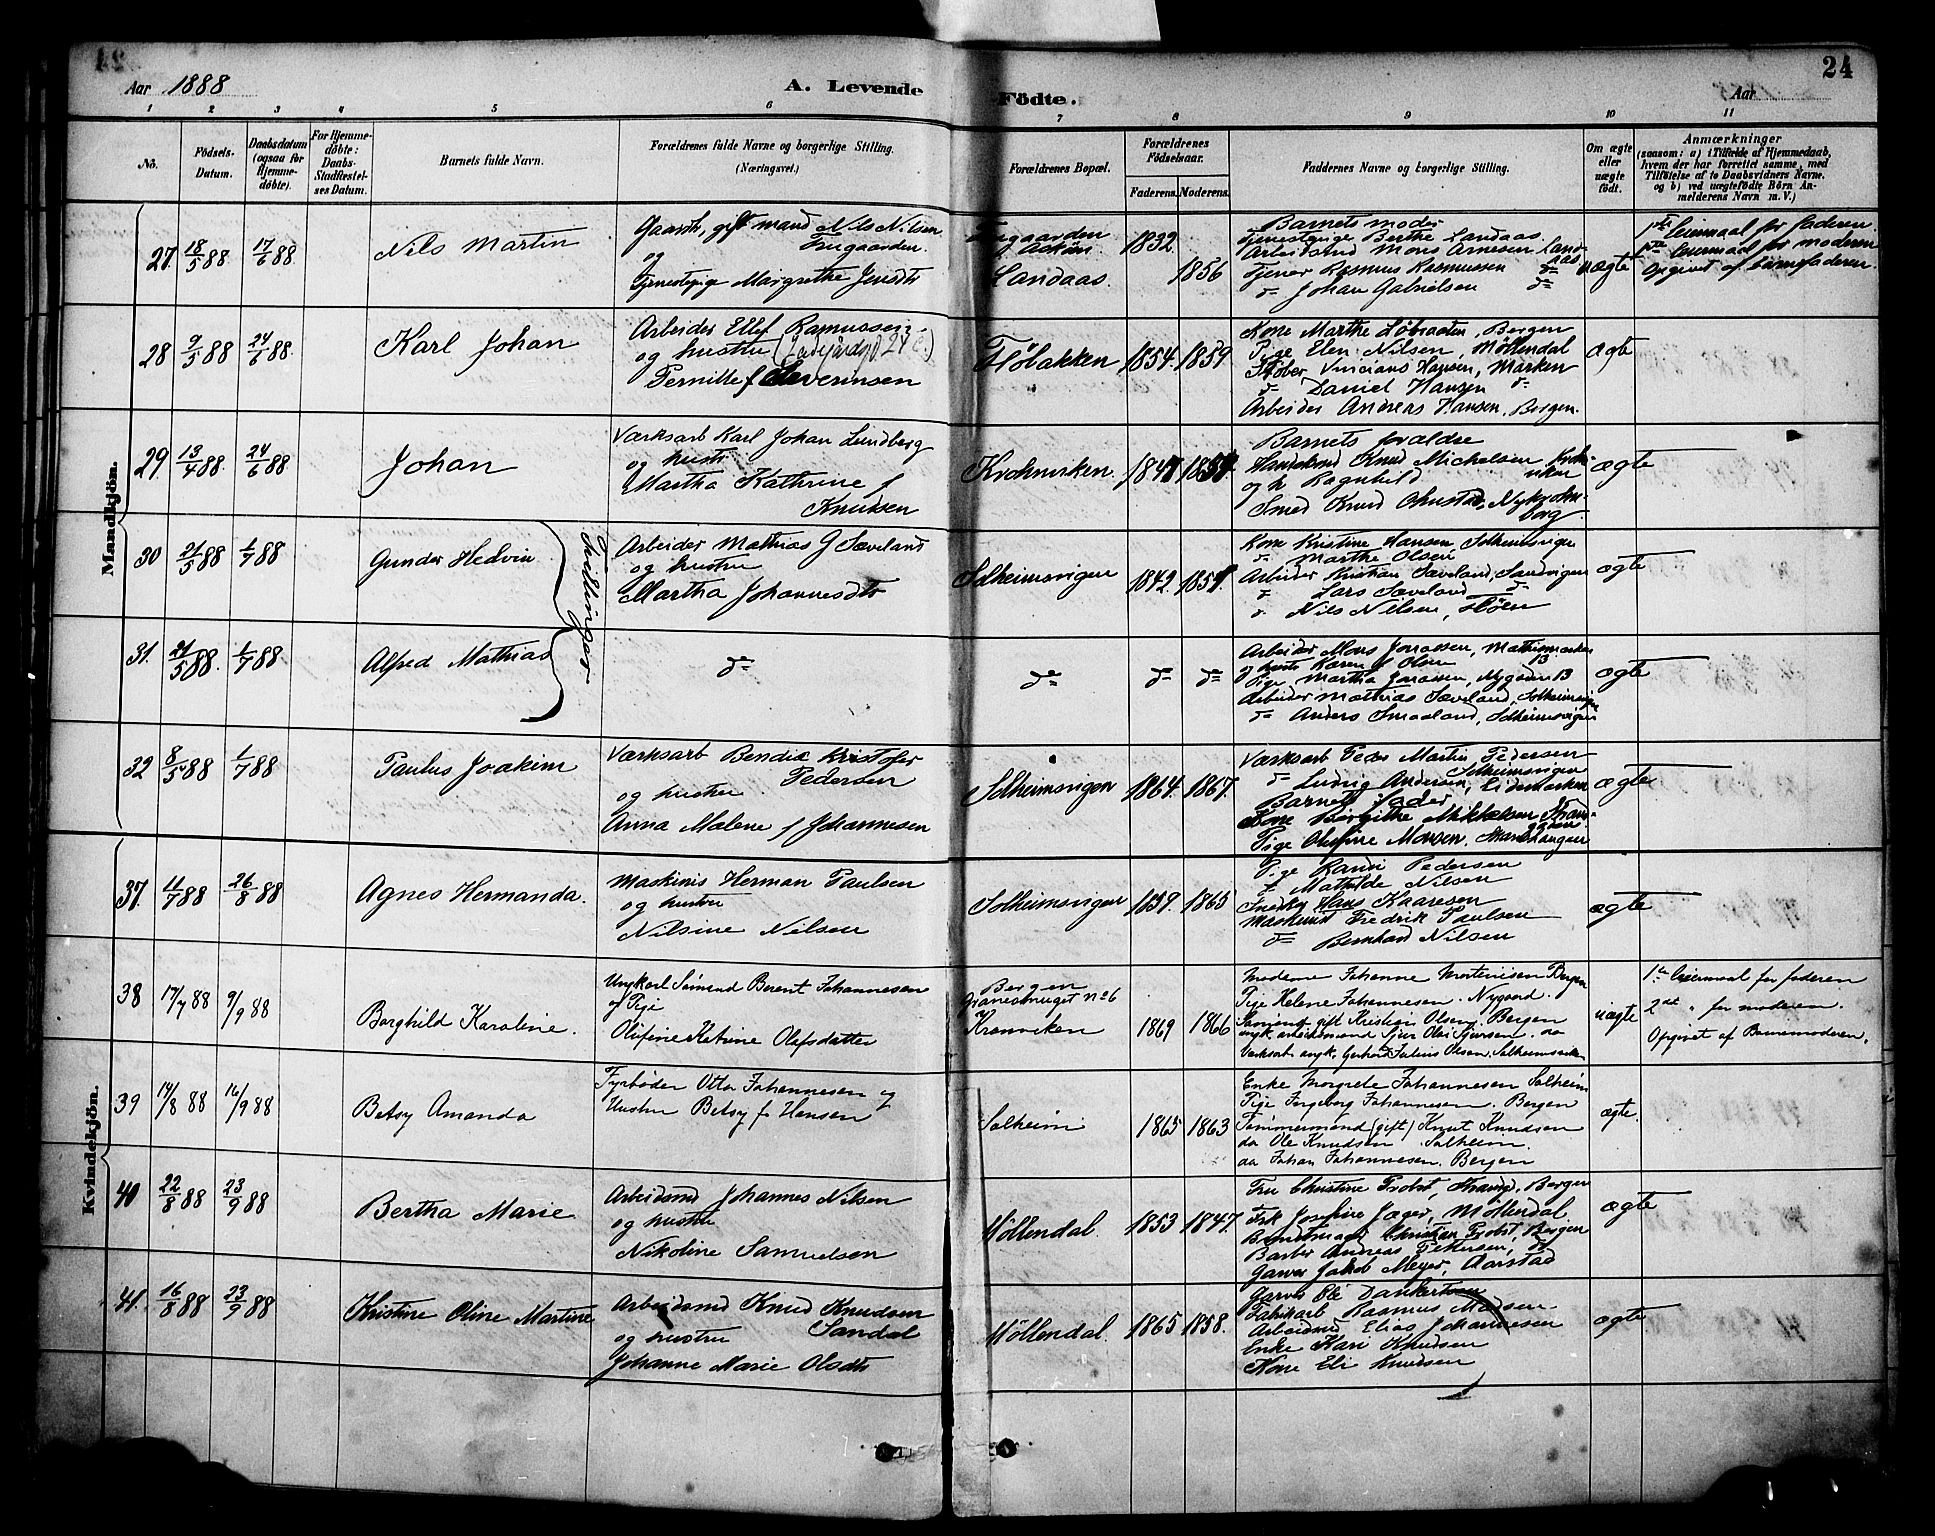 24
Aar 1888
A. Levende
Födte.
Aar
1 2 3 4 5 6 7 8 9 10 11
No.
Födsels-
Datum.
Daabsdatum
(ogsaa for
Hjemme-
döbte).
For Hjemme-
döbte:
Daabs-
Stadfæstel-
ses Datum.
Barnets fulde Navn.
Forældrenes fulde Navne og borgerlige Stilling.
(Næringsvei.)
Forældrenes Bopæl.
Forældrenes
Födselsaar.
Faderens. Moderens.
Faddernes Navne og borgerlige Stilling.
Om ægte
eller
uægte
födt.
Anmærkninger
(saasom: a) i Tilfælde af Hjemmedaab,
hvem der har forrettet samme, med
Tilföielse af to Daabsvidners Navne.
og b) ved uægtefödte Börn An-
melderens Navn m. V.)
Mandkjön.
27. 18/5 88 17/6 88
Nils Martin
gift mand Nils Nilsen
og
Tjenestepige Margrethe Jensdtr
Landaas.
1832
1856
Barnets moder
Tjenestepige Berthe Landaas
Arbeidsmd Mons Arnesen Land-
aas
Tjener Rasmus Rasmussen do
do Johan Gabrielsen do
uægte
1ste leiermaal for faderen
leiermaal for moderen
Opgivet af barnefaderen.
28 9/5 88 24/6 88.
Karl Johan
Arbeider Ellef Rasmussen
og hustru
Pernille f Severinsen
Flöbakken
1854. 1859
Kone Marthe Löbraaten, Bergen
Pige Elen Nilsen, Möllendal
Hansen, Marken
do Daniel Hansen do
Arbeider Andreas Hansen, Bergen.
ægte
29. 13/4 88. 24/6 88
Johan
Værksarb Karl Johan Lundberg
og hustr
Martha Kathrine f
Knudsen
Krohnviken.
Barnets forældre
Knud Michelsen Kroh-
viken
og h Ragnhild
Smed Knud
ægte
30 21/5 88 1/7 88
Gunder Hedvin
Tvillinger
Arbeider Mathias G Sæveland
og hustru
Martha Johannesdtr
Solheimsvigen
1842.
Kone Kristine Hansen Solheimsvigen
do Marthe Olsen
Arbeider Kristian Sæveland, Sandvigen
do Lars Sæveland do
do Nils Nilsen,
ægte
31. 21/5 88. 1/7 88
Alfred Mathias
do
do
do do
Arbeider Mons Jonassen,
og hustr Karen f Olsen
Pige Martha Jonassen, Nygaard 13
Arbeider Mathias Sæveland, Solheimsvigen
do Anders Smaaland, Solheimsvigen
ægte
32 8/5 88 1/7 88
Paulus Joakim
Værksarb Bendix Kristofer
Pedersen
og hustru
Anna Malene f Johannesen
Solheimsvigen
1864. 1867.
Værksarb Peder Martin Pedersen
Solheimsvigen
do Ludvig Andersen,
Barnets fader
Kone Birgithe Mikkelsen
Pige Olufine Monsen,
ægte
Kvindekjön.
37. 4/7 88 26/8 88
Agnes Hermanda.
Maskinis Herman Paulsen
og hustru
Nilsine Nilsen
Solheimsvigen
1859. 1865
Pige Randi Pedersen
Mathilde Nilsen
Snedker Hans Kaaresen
Maskinist Fredrik Paulsen
do Bernhard Nilsen
ægte
38 17/7 88 9/9 88
Borghild Karoline.
Ungkarl Sömand Berent Johannesen
og Pige
Olufine Katrine Olefsdatter
Bergen
No 6
Kronviken
1869 1866
Moderen Johanne Mortensen Bergen
Pige Helene Johannesen. Nygaard.
Sömand gift Kristian Olsen Bergen
ungk. arbeidsmand Sjur Olai Sjursen. do
Værksarb. ungk. Gerhard Julius Olsen, Solheimsviken
uægte
1ste leiermaal for faderen
2det " for moderen.
Opgivet af Barnemoderen.
39 14/8 88 16/9 88
Betsy Amanda
Fyrböder Otto Johannesen og
Hustru Betsy f. Hansen
Solheim
1865 1863
Enke Margrete Johannesen Solheim
Pige Ingeborg Johannesen. Bergen
Tömmermand (gift) Knut Knudsen
do Ole Knudsen Solheim
do Johan Johannesen. Bergen
ægte.
40 22/8 88 23/9 88
Bertha Marie
Arbeidsmd Johannes Nilsen
og hustru
Nikoline Samuelsen
Möllendal.
1853 1847.
Fru Christine Probst, Bergen
Frk Josefine Jæger, Möllendal
Christian Probst, Bergen
Barber Andreas Pettersen, do
Garver Jakob Meyer, Aarstad
ægte
41. 16/8 88 23/9 88
Kristine Oline Martine
Arbeidsmd Knud Knudsen
Sandal
og hustru
Johanne Marie Olsdtr
Möllendal.
1865 1858.
Garver Ole Dankertsen
Fabrikarb Rasmus Madsen
Arbeidsmd Elias Johannesen
Enke Kari Knudsen
Kone Eli Knudsen
ægte